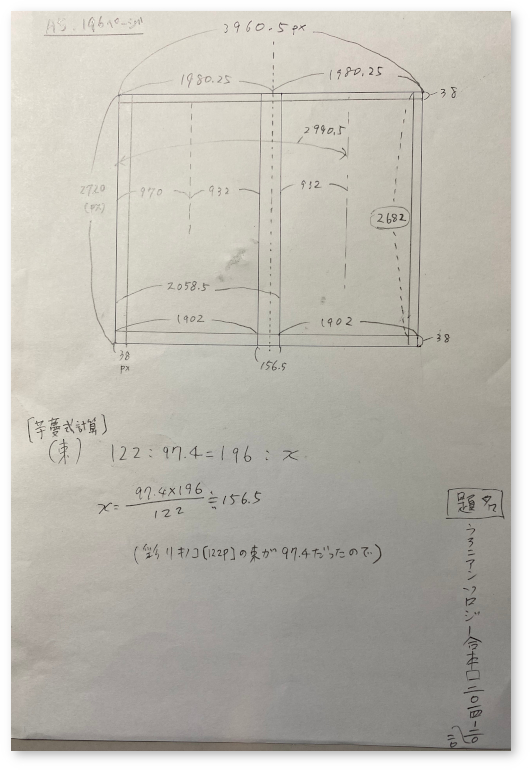 A5.196ページ
3960.5px
1980.25
1980.25
38
2990.5
2720
(px)
970
932
932
2682
2058.5
1902
1902
38
38
px
156.5
[芋夢式計算]
(束) 122:97.4=196:x
x=97.4×196/122≒156.5
(彩リキノコ[122P]の束が97.4だったので)
題名
うろニアンソロジー合本口二〇一四-二〇